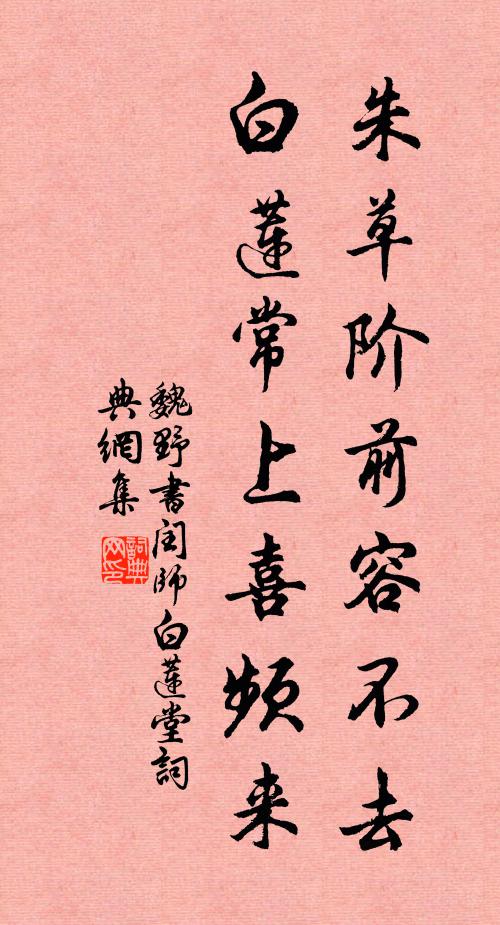 朱草阶前容不去
白莲常上喜频来
魏野書閏師白莲堂詞
典網集
詞典網印